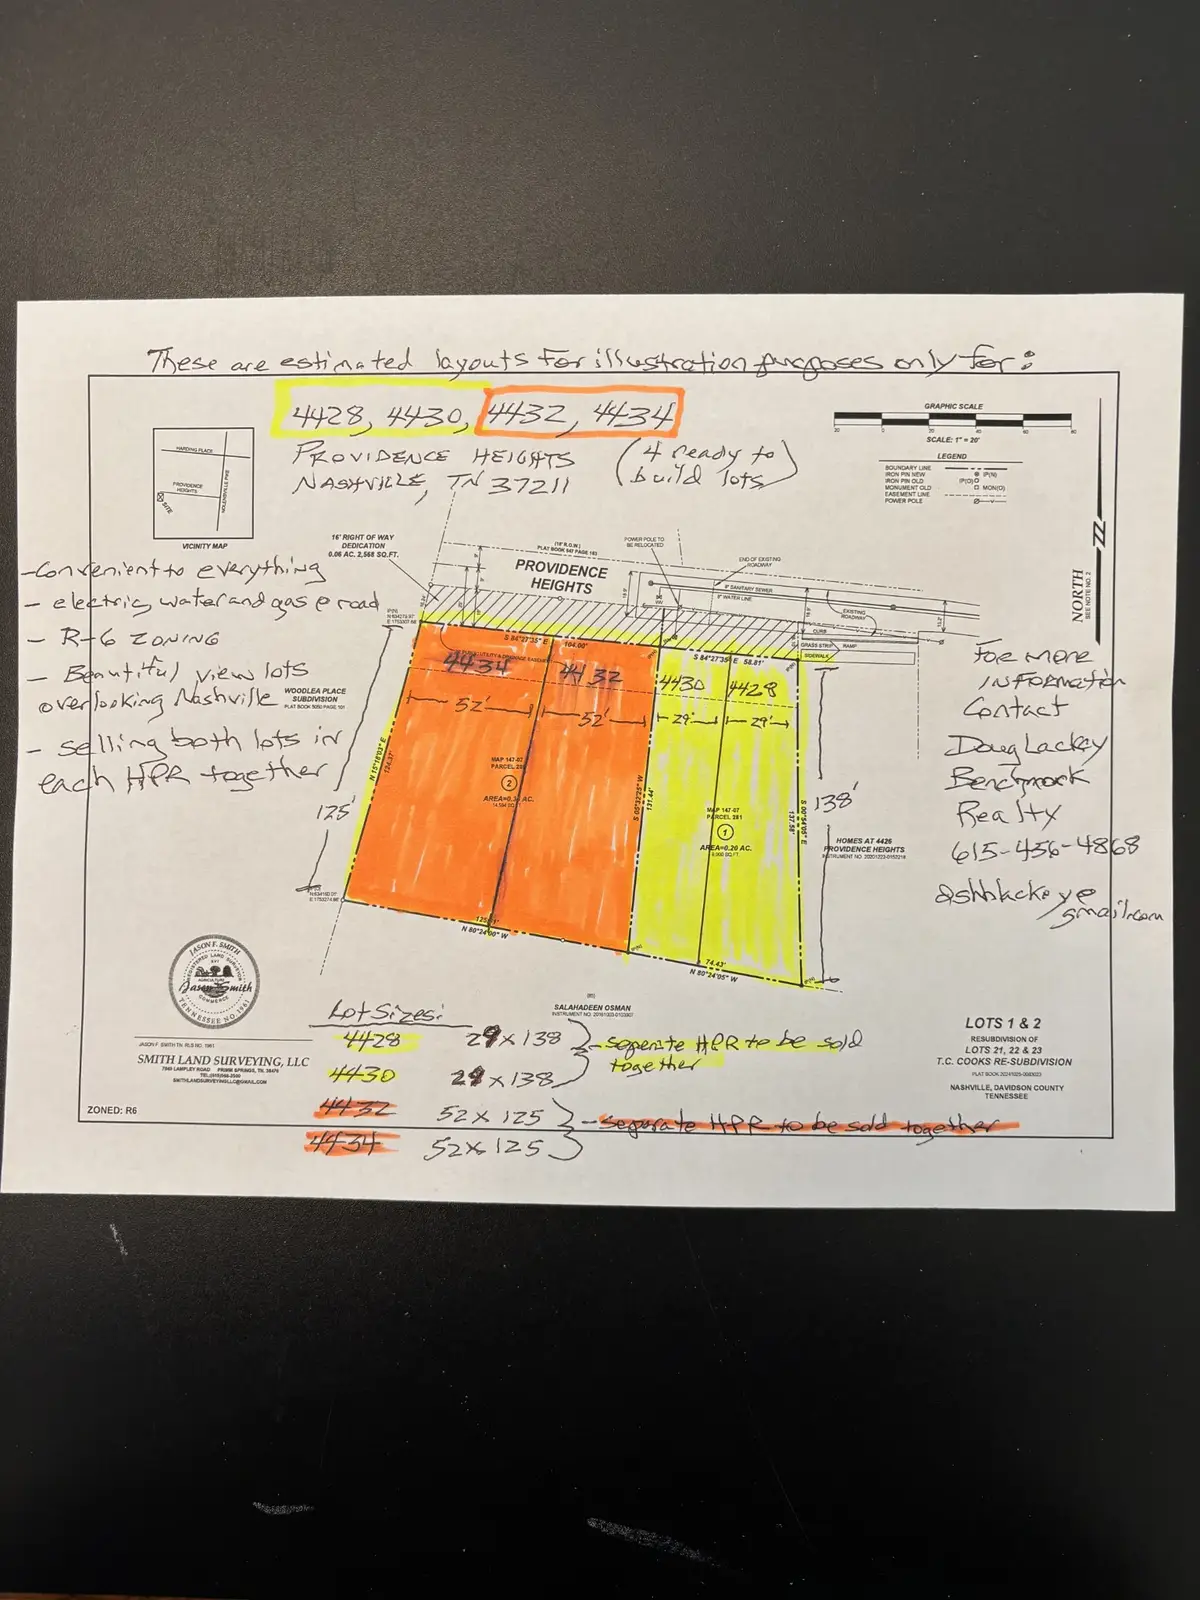 These are estimated layouts for illustration purposes only for:
4428, 4430, 4432, 4434
PROVIDENCE HEIGHTS
NASHVILLE, TN 37211
(4 ready to
build lots)
GRAPHIC SCALE
SCALE: 1" = 20'
LEGEND
BOUNDARY LINE
IRON PIN NEW IP(N)
IRON PIN OLD IP(O)
MONUMENT OLD MON(O)
EASEMENT LINE
POWER POLE
HARDING PLACE
PROVIDENCE
HEIGHTS
NOLENSVILLE PIKE
SITE
VICINITY MAP
16' RIGHT OF WAY
DEDICATION
0.06 AC. 2,568 SQ.FT.
PROVIDENCE
HEIGHTS
POWER POLE TO
BE RELOCATED
END OF EXISTING
ROADWAY
8" SANITARY SEWER
8" WATER LINE
EXISTING
ROADWAY
CURB
GRASS STRIP
RAMP
SIDEWALK
NORTH
SEE NOTE NO. 2
- Convenient to everything
- electric, water and gas @ road
- R-6 ZONING
- Beautiful view lots
overlooking Nashville
- selling both lots in
each HPR together
WOODLEA PLACE
SUBDIVISION
PLAT BOOK 5050 PAGE 101
S 84°27'35" E 104.00'
S 84°27'35" E 58.81'
4434
4432
4430
4428
52'
52'
29'
29'
N 15°18'03" E
124.37'
S 05°32'25" W
131.44'
S 00°54'05" E
137.58'
125'
138'
MAP 147-07
2
MAP 147-07
PARCEL 281
1
AREA=0.20 AC.
N 80°24'00" W
74.43'
N 80°24'05" W
HOMES AT 4426
PROVIDENCE HEIGHTS
For more
INFORMATION
Contact
Doug Lackey
Benchmark
Realty
615-456-4868
SALAHADEEN OSMAN
JASON F. SMITH
REGISTERED LAND SURVEYOR
AGRICULTURE
COMMERCE
TENNESSEE NO. 1961
JASON F. SMITH TN. RLS NO. 1961
SMITH LAND SURVEYING, LLC
SMITHLANDSURVEYINGLLC@GMAIL.COM
ZONED: R6
Lot Sizes:
4428 29 x 138
4430 29 x 138
- seperate HPR to be sold
together
4432 52 x 125
4434 52 x 125
- separate HPR to be sold together
LOTS 1 & 2
RESUBDIVISION OF
LOTS 21, 22 & 23
T.C. COOKS RE-SUBDIVISION
NASHVILLE, DAVIDSON COUNTY
TENNESSEE